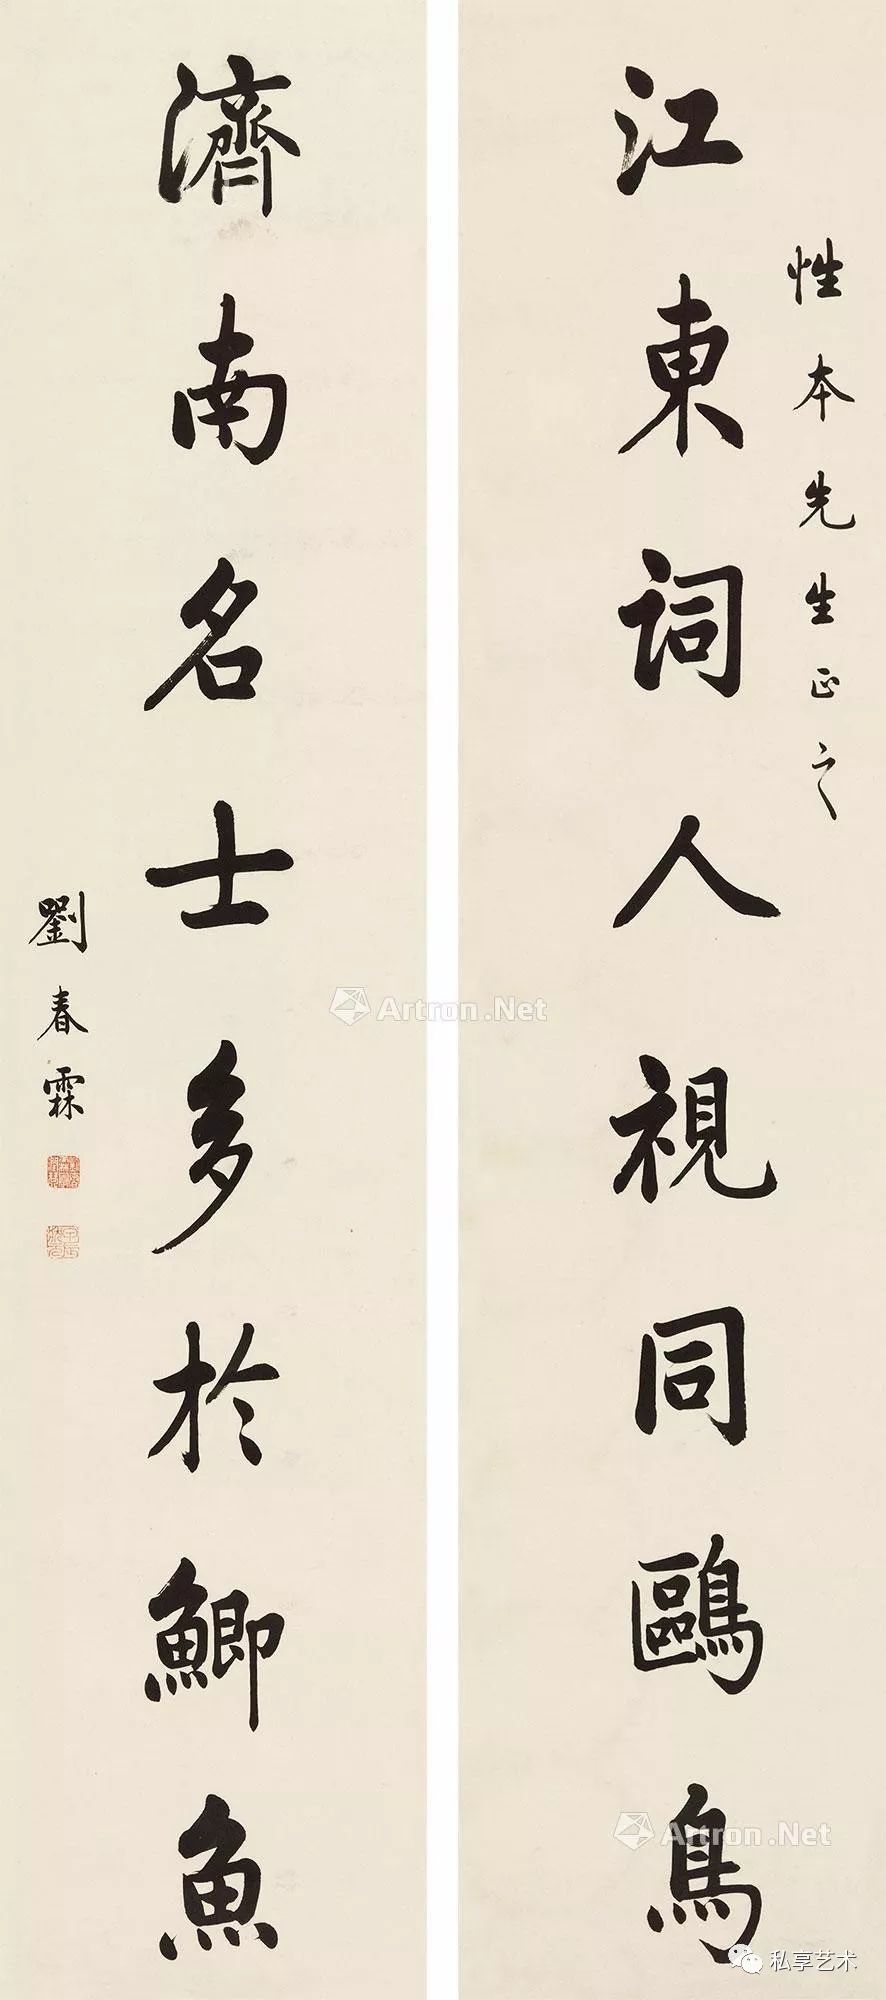 性本先生正之
江東詞人視同鷗鳥
濟南名士多於鯽魚
劉春霖
Artron.Net
Artron.Net
私享艺术